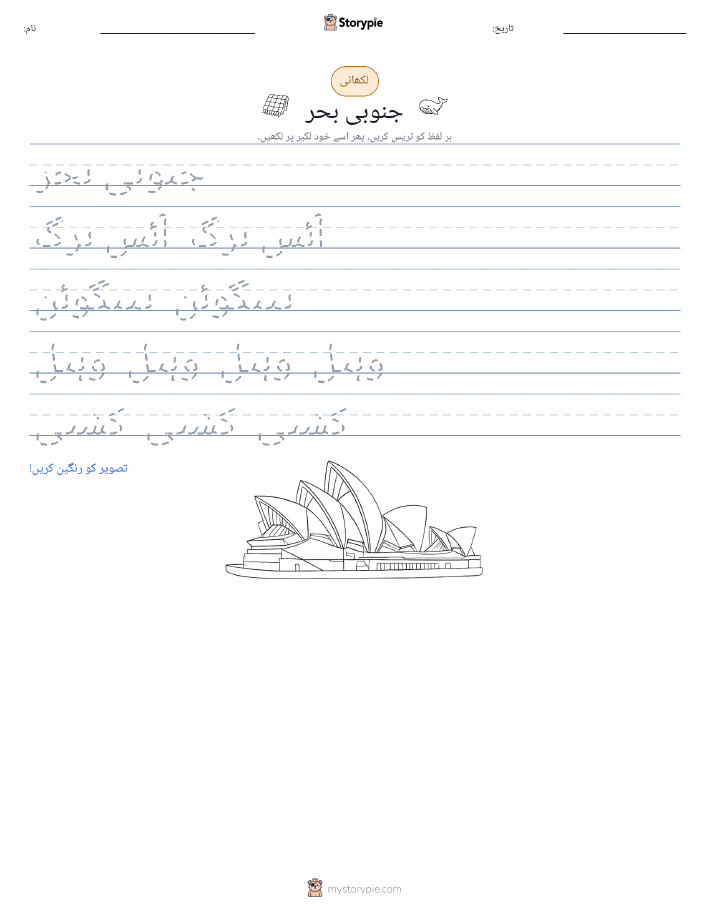 Storypie
نام:
تاریخ:
لکھائی
جنوبی بحر
ہر لفظ کو ٹریس کریں، پھر اسے خود لکیر پر لکھیں۔
جنوبی بحر
آئس برگ آئس برگ
پینگوئن پینگوئن
وہیل وہیل وہیل وہیل
کشتی کشتی کشتی
تصویر کو رنگین کریں!
mystorypie.com